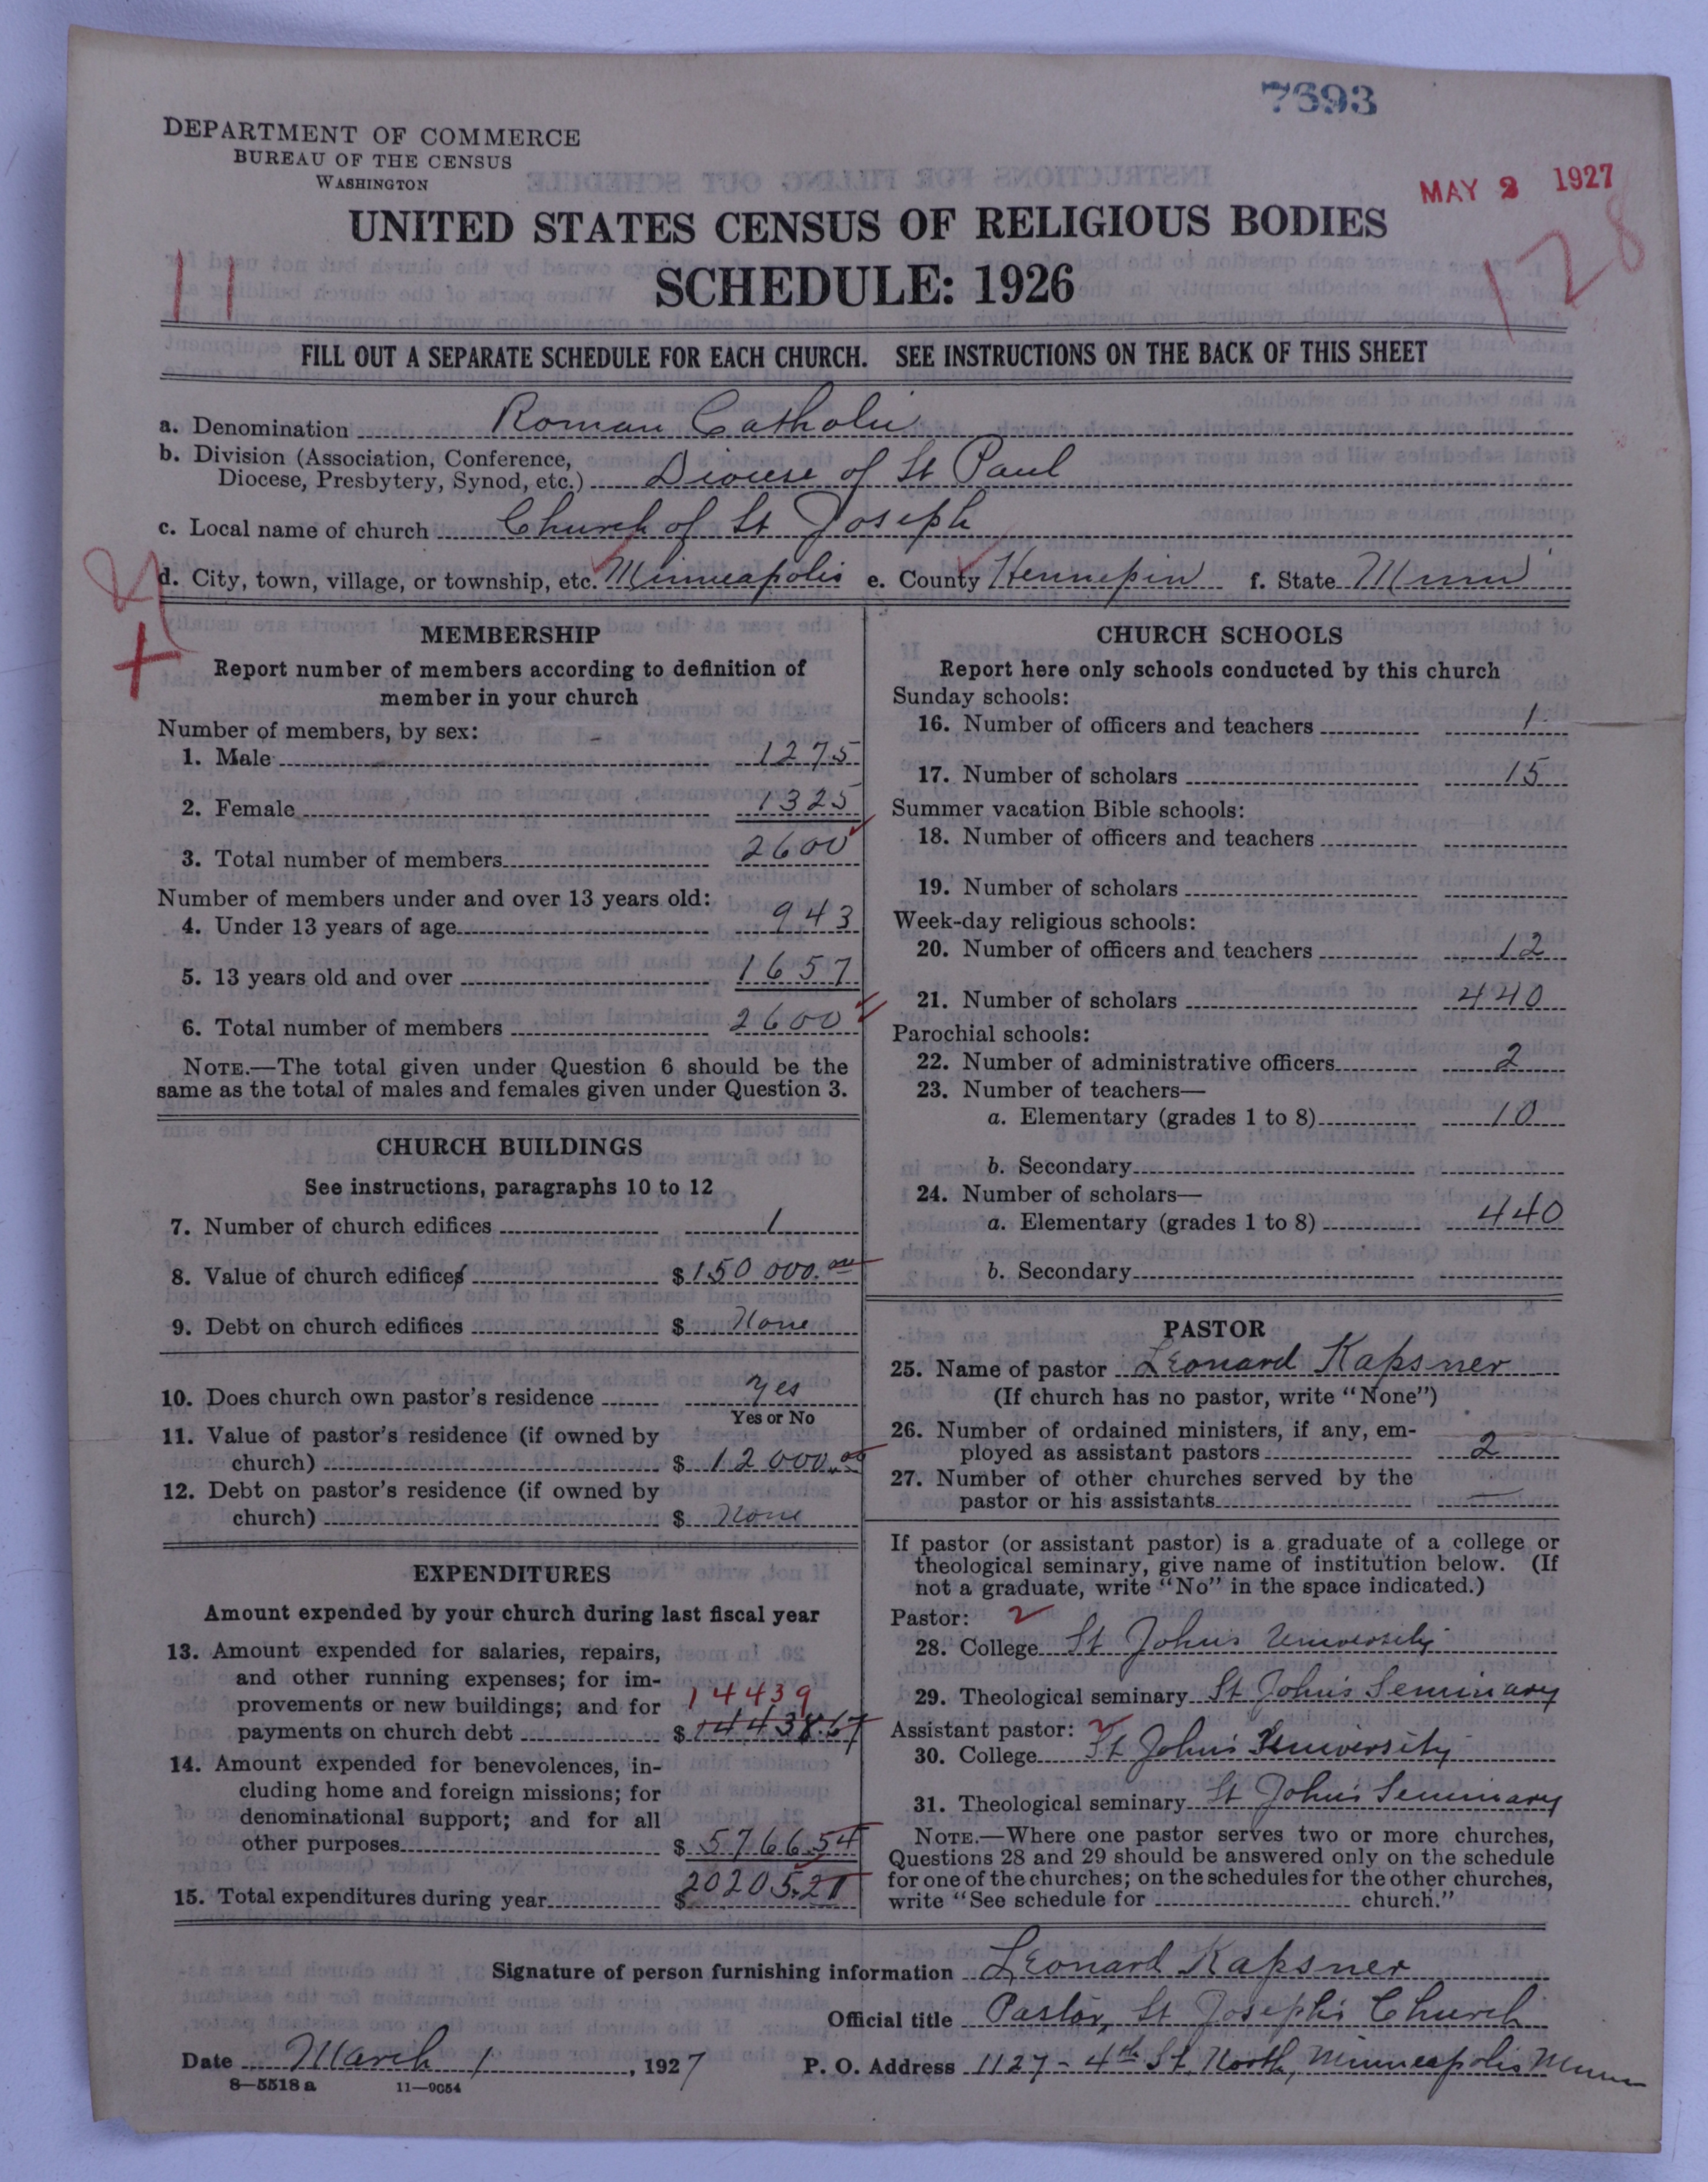 7693
DEPARTMENT OF COMMERCE
BUREAU OF THE CENSUS
WASHINGTON
MAY 2 1927
UNITED STATES CENSUS OF RELIGIOUS BODIES
SCHEDULE: 1926
11
128
FILL OUT A SEPARATE SCHEDULE FOR EACH CHURCH. SEE INSTRUCTIONS ON THE BACK OF THIS SHEET
a. Denomination Roman Catholic
b. Division (Association, Conference,
Diocese, Presbytery, Synod, etc.) Diocese of St Paul
c. Local name of church Church of St Joseph
d. City, town, village, or township, etc. Minneapolis e. County Hennepin f. State Minn
MEMBERSHIP
Report number of members according to definition of
member in your church
Number of members, by sex:
1. Male 1275
2. Female 1325
3. Total number of members 2600
Number of members under and over 13 years old:
4. Under 13 years of age 943
5. 13 years old and over 1657
6. Total number of members 2600
NOTE.—The total given under Question 6 should be the
same as the total of males and females given under Question 3.
CHURCH BUILDINGS
See instructions, paragraphs 10 to 12
7. Number of church edifices 1
8. Value of church edifices $150 000.00
9. Debt on church edifices $ None
10. Does church own pastor's residence Yes
Yes or No
11. Value of pastor's residence (if owned by
church) $ 12 000.00
12. Debt on pastor's residence (if owned by
church) $ None
EXPENDITURES
Amount expended by your church during last fiscal year
13. Amount expended for salaries, repairs,
and other running expenses; for im-
provements or new buildings; and for 14439
payments on church debt $ 14438.67
14. Amount expended for benevolences, in-
cluding home and foreign missions; for
denominational support; and for all
other purposes $ 5766.54
15. Total expenditures during year $20205.21
CHURCH SCHOOLS
Report here only schools conducted by this church
Sunday schools:
16. Number of officers and teachers 1
17. Number of scholars 15
Summer vacation Bible schools:
18. Number of officers and teachers
19. Number of scholars
Week-day religious schools:
20. Number of officers and teachers 12
21. Number of scholars 440
Parochial schools:
22. Number of administrative officers 2
23. Number of teachers—
a. Elementary (grades 1 to 8) 10
b. Secondary
24. Number of scholars—
a. Elementary (grades 1 to 8) 440
b. Secondary
PASTOR
25. Name of pastor Leonard Kapsner
(If church has no pastor, write "None")
26. Number of ordained ministers, if any, em-
ployed as assistant pastors 2
27. Number of other churches served by the
pastor or his assistants —
If pastor (or assistant pastor) is a graduate of a college or
theological seminary, give name of institution below. (If
not a graduate, write "No" in the space indicated.)
Pastor: 2
28. College St Johns University
29. Theological seminary St John's Seminary
Assistant pastor: 2
30. College St John's University
31. Theological seminary St John's Seminary
NOTE.—Where one pastor serves two or more churches,
Questions 28 and 29 should be answered only on the schedule
for one of the churches; on the schedules for the other churches,
write "See schedule for church."
Signature of person furnishing information Leonard Kapsner
Official title Pastor, St Joseph's Church
Date March 1, 1927 P. O. Address 1127 - 4th St. North, Minneapolis Minn
8—5518 a 11—9054